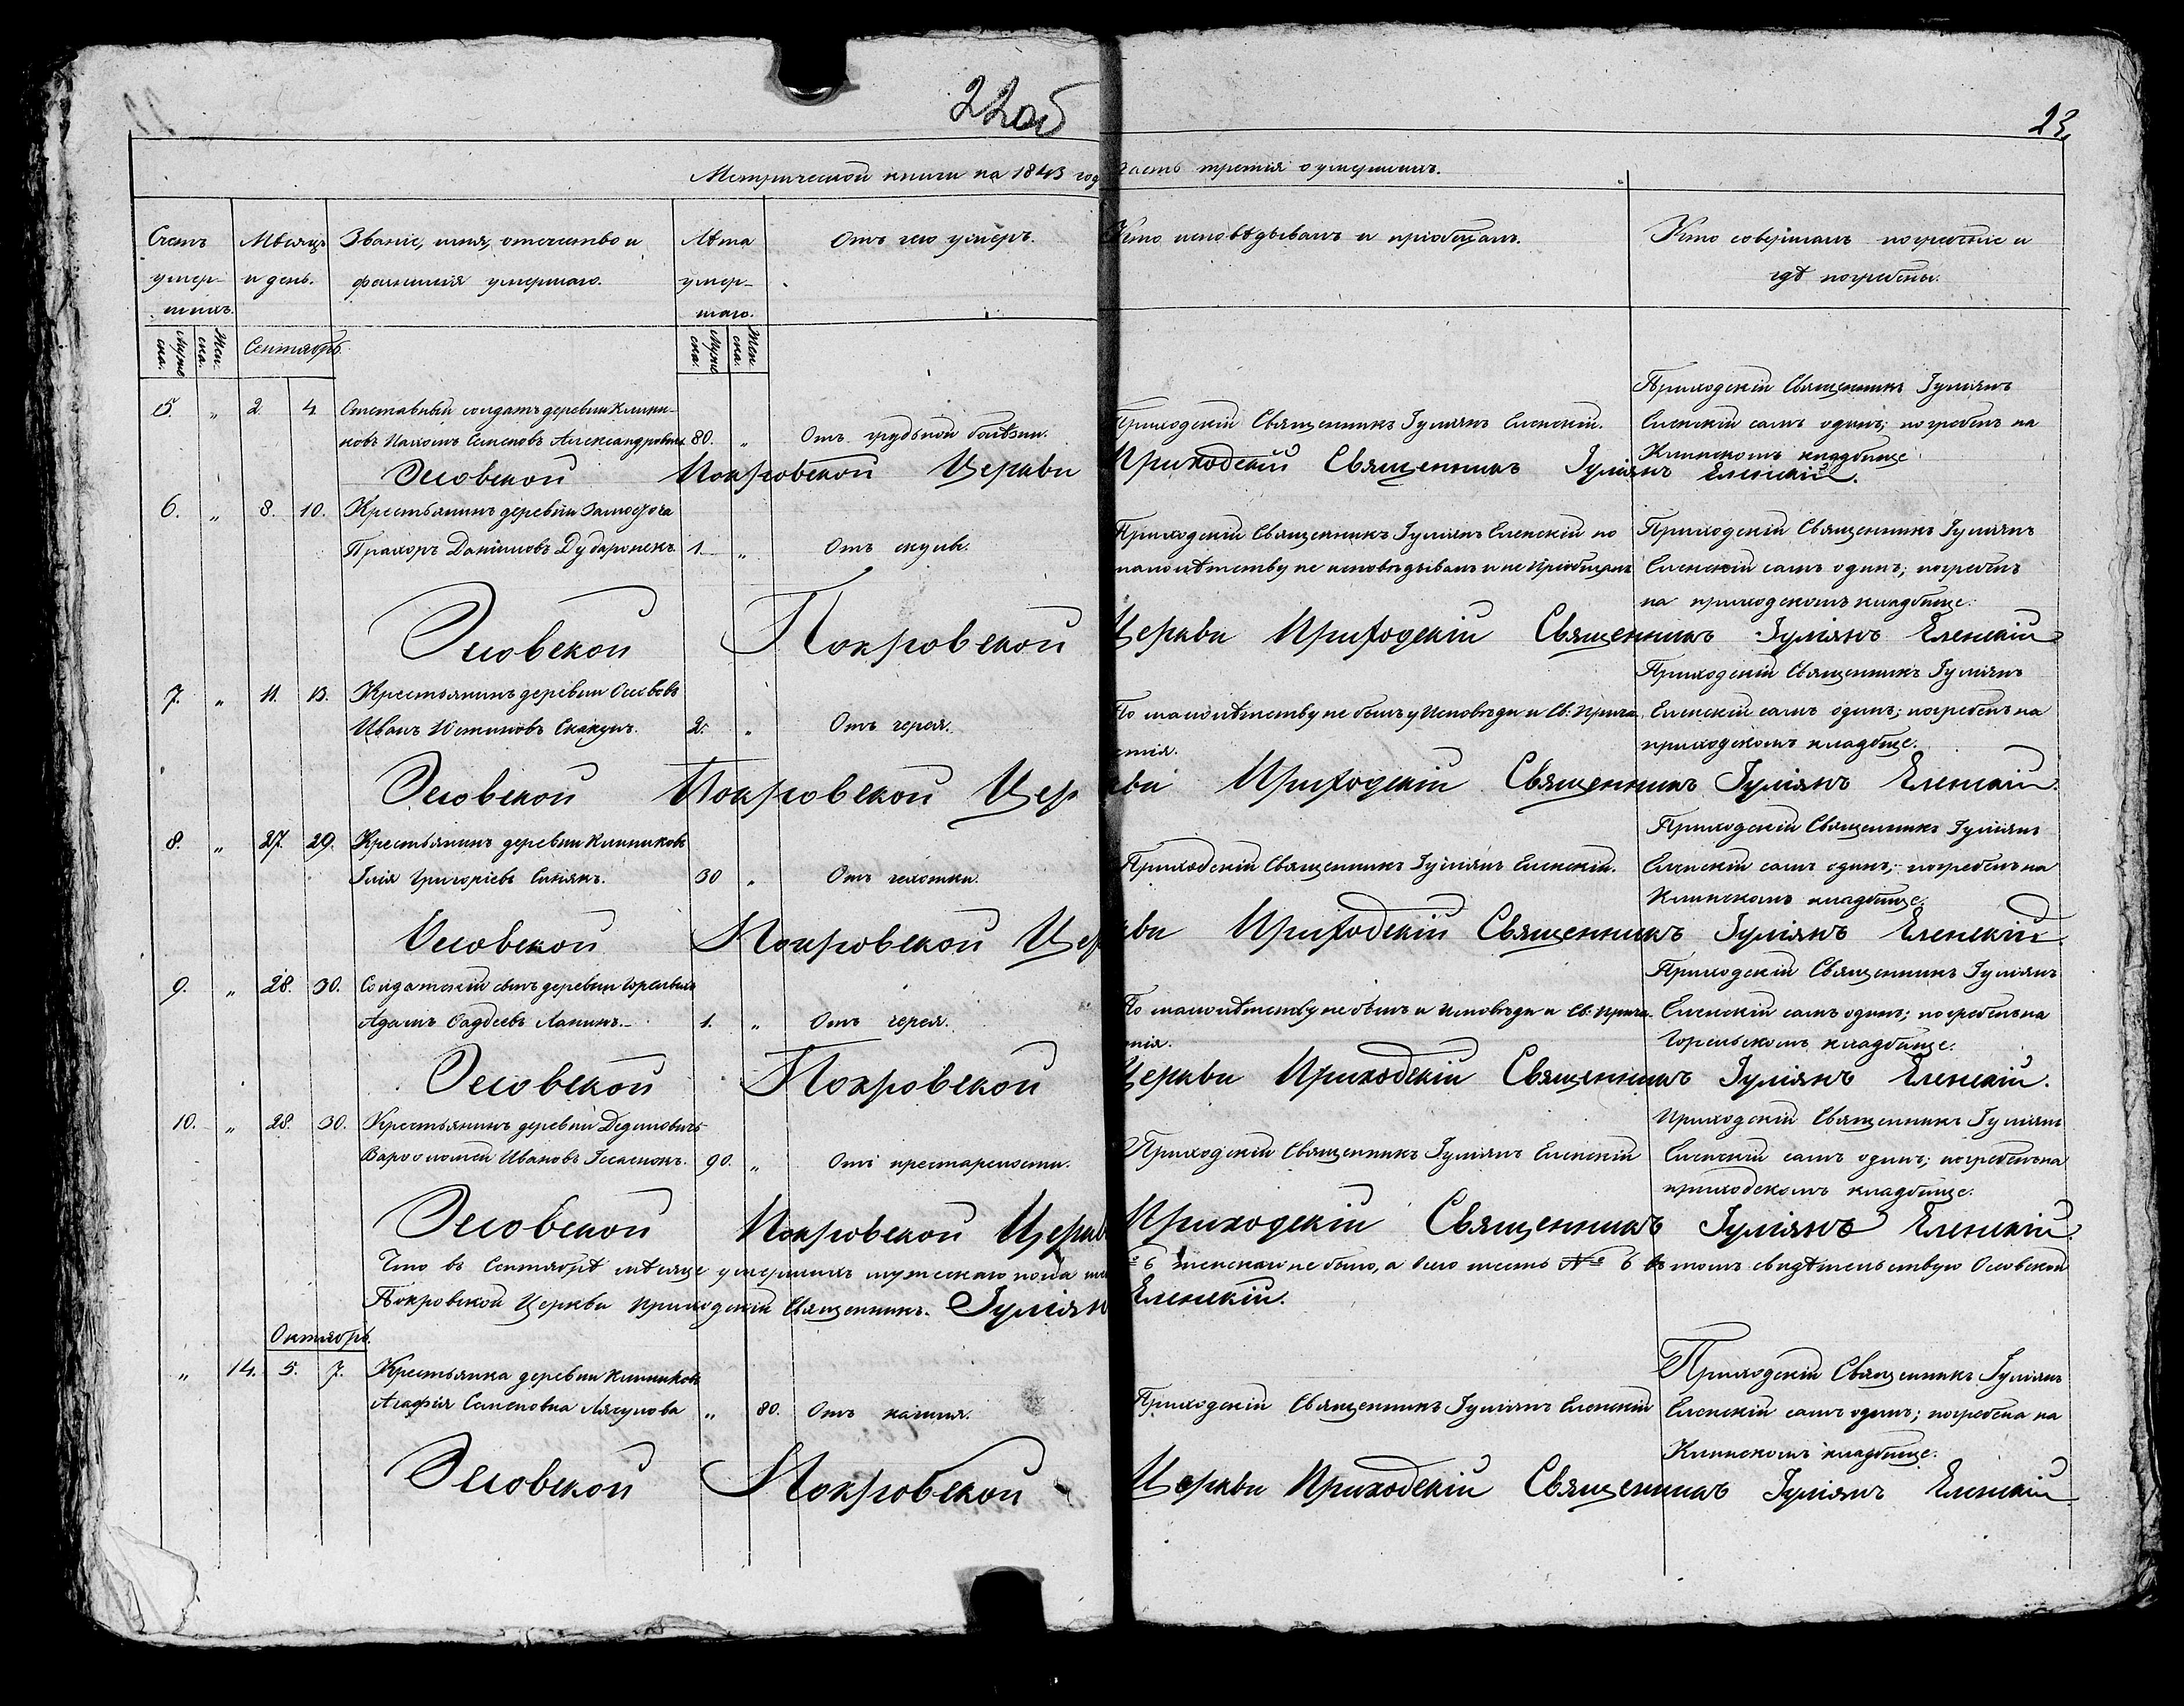 22об
23.
Метрической книги на 1843 год часть третія о умершихъ.
Счетъ умер-шихъ.
Мѣсяцъ и день.
Званіе, имя, отечество и фамилія умершаго.
Лѣта умер-шаго.
Отъ чего умеръ.
Кто исповѣдывалъ и пріобщалъ.
Кто совершалъ погребеніе и гдѣ погребены.
Муже ска.
Жен ска.
Сентябрь
Муже ска.
Жен ска.
5. „ 2. 4. Отставный солдатъ деревни Клини-
ковъ Пахомъ Семеновъ Александровичъ 80. „ Отъ грудьной болѣзни.
Приходскій Священникъ Іуліянъ Еленскій.
Приходскій Священникъ Іуліянъ
Еленскій самъ одинъ; погребенъ на
Клинскомъ кладбище
Эсовской Покровской Церкви Приходскій Священникъ Іуліянъ Еленскій.
6. „ 8. 10. Крестьянинъ деревни
Прахоръ Даніиловъ Дударонекъ 1. „ Отъ скулы.
Приходскій Священникъ Іуліянъ Еленскій по
малолѣтству не исповѣдывалъ и не пріобщалъ
Приходскій Священникъ Іуліянъ
Еленскій самъ одинъ; погребенъ
на приходскомъ кладбище.
Эсовской Покровской Церкви Приходскій Священникъ Іуліянъ Еленскій
7. „ 11. 13. Крестьянинъ деревни Осововъ
Иванъ Устиновъ Скакунъ. 2. „ Отъ черея.
По малолѣтству не былъ у Исповѣди и Св: Прича
стія.
Приходскій Священникъ Іуліянъ
Еленскій самъ одинъ; погребенъ на
приходскомъ кладбище.
Эсовской Покровской Церкви Приходскій Священникъ Іуліянъ Еленскій.
8. „ 27. 29. Крестьянинъ деревни Клиниковъ
Ілія Григоріевъ Синякъ. 30 „ Отъ чехотки.
Приходскій Священникъ Іуліянъ Еленскій.
Приходскій Священникъ Іуліянъ
Еленскій самъ одинъ; погребенъ на
Клинскомъ кладбище.
Эсовской Покровской Церкви Приходскій Священникъ Іуліянъ Еленскій.
9. „ 28. 30. Солдатскій сынъ деревни
Адамъ Фадѣевъ Ланинъ. 1. „ Отъ черея.
По малолѣтству не былъ и Исповѣди и Св: Прича-
стія.
Приходскій Священникъ Іуліянъ
Еленскій самъ одинъ; погребенъ на
Горельскомъ кладбище.
Эсовской Покровской Церкви Приходскій Священникъ Іуліянъ Еленскій.
10. „ 28. 30. Крестьянинъ деревни Дединовичъ
Варфоломей Ивановъ 90. „ Отъ престарелости.
Приходскій Священникъ Іуліянъ Еленскій
Приходскій Священникъ Іуліянъ
Еленскій самъ одинъ; погребенъ на
приходскомъ кладбище.
Эсовской Покровской Церкви Приходскій Священникъ Іуліянъ Еленскій.
Что въ Сентябрѣ мѣсяце умершихъ мужескаго пола 6 женскаго не было, а всего шесть № 6 въ томъ свидѣтельствую Осовской
Покровской Церкви Приходскій Священникъ. Іуліянъ Еленскій.
Октябрь.
„ 14. 5. 7. Крестьянка деревни Клиниковъ
Агафія Семеновна Лягунова „ 80. Отъ кашля.
Приходскій Священникъ Іуліянъ Еленскій
Приходскій Священникъ Іуліянъ
Еленскій самъ одинъ; погребена на
Клинскомъ кладбище.
Эсовской Покровской Церкви Приходскій Священникъ Іуліянъ Еленскій